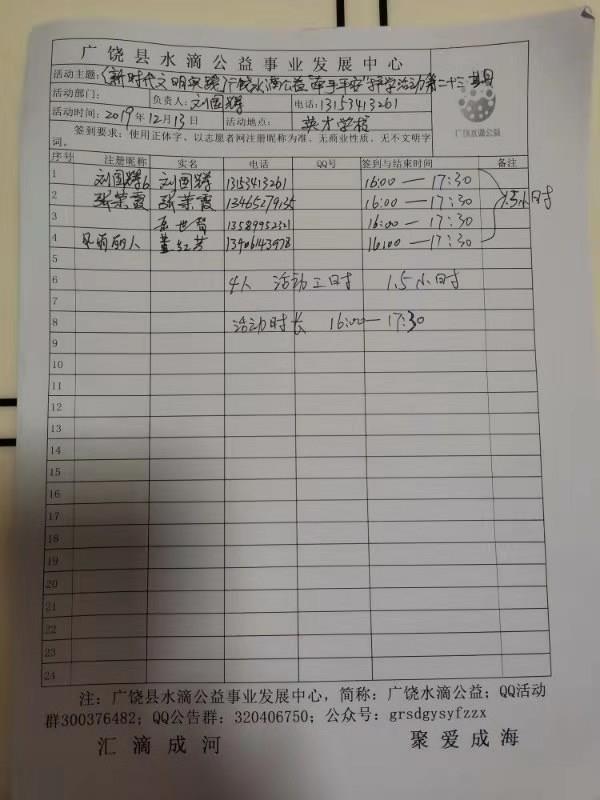 广饶县水滴公益事业发展中心
活动主题：《新时代文明实践》广饶水滴公益"牵手平安"护学活动第二十三期
活动部门： 负责人：刘国辉 电话：13153413261
活动时间：2019年12月13日 活动地点： 英才学校
签到要求：使用正体字、以志愿者网注册昵称为准、无商业性质、无不文明字
词。
广饶水滴公益
序号 注册昵称 实名 电话 QQ号 签到与结束时间 备注
1 刘国辉6 刘国辉 13153413261 16:00—17:30
2 张荣霞 张荣霞 13465279135 16:00—17:30 1.5小时
3 世智 13589952321 16:00—17:30
4 丽丽人 董红芳 13406143978 16:00—17:30
5
6 4人 活动工时 1.5小时
7
8 活动时长 16:00—17:30
9
10
11
12
13
14
15
16
17
18
19
20
21
22
23
24
注：广饶县水滴公益事业发展中心，简称：广饶水滴公益；QQ活动
群300376482；QQ公告群：320406750；公众号：grsdgysyfzzx
汇滴成河 聚爱成海